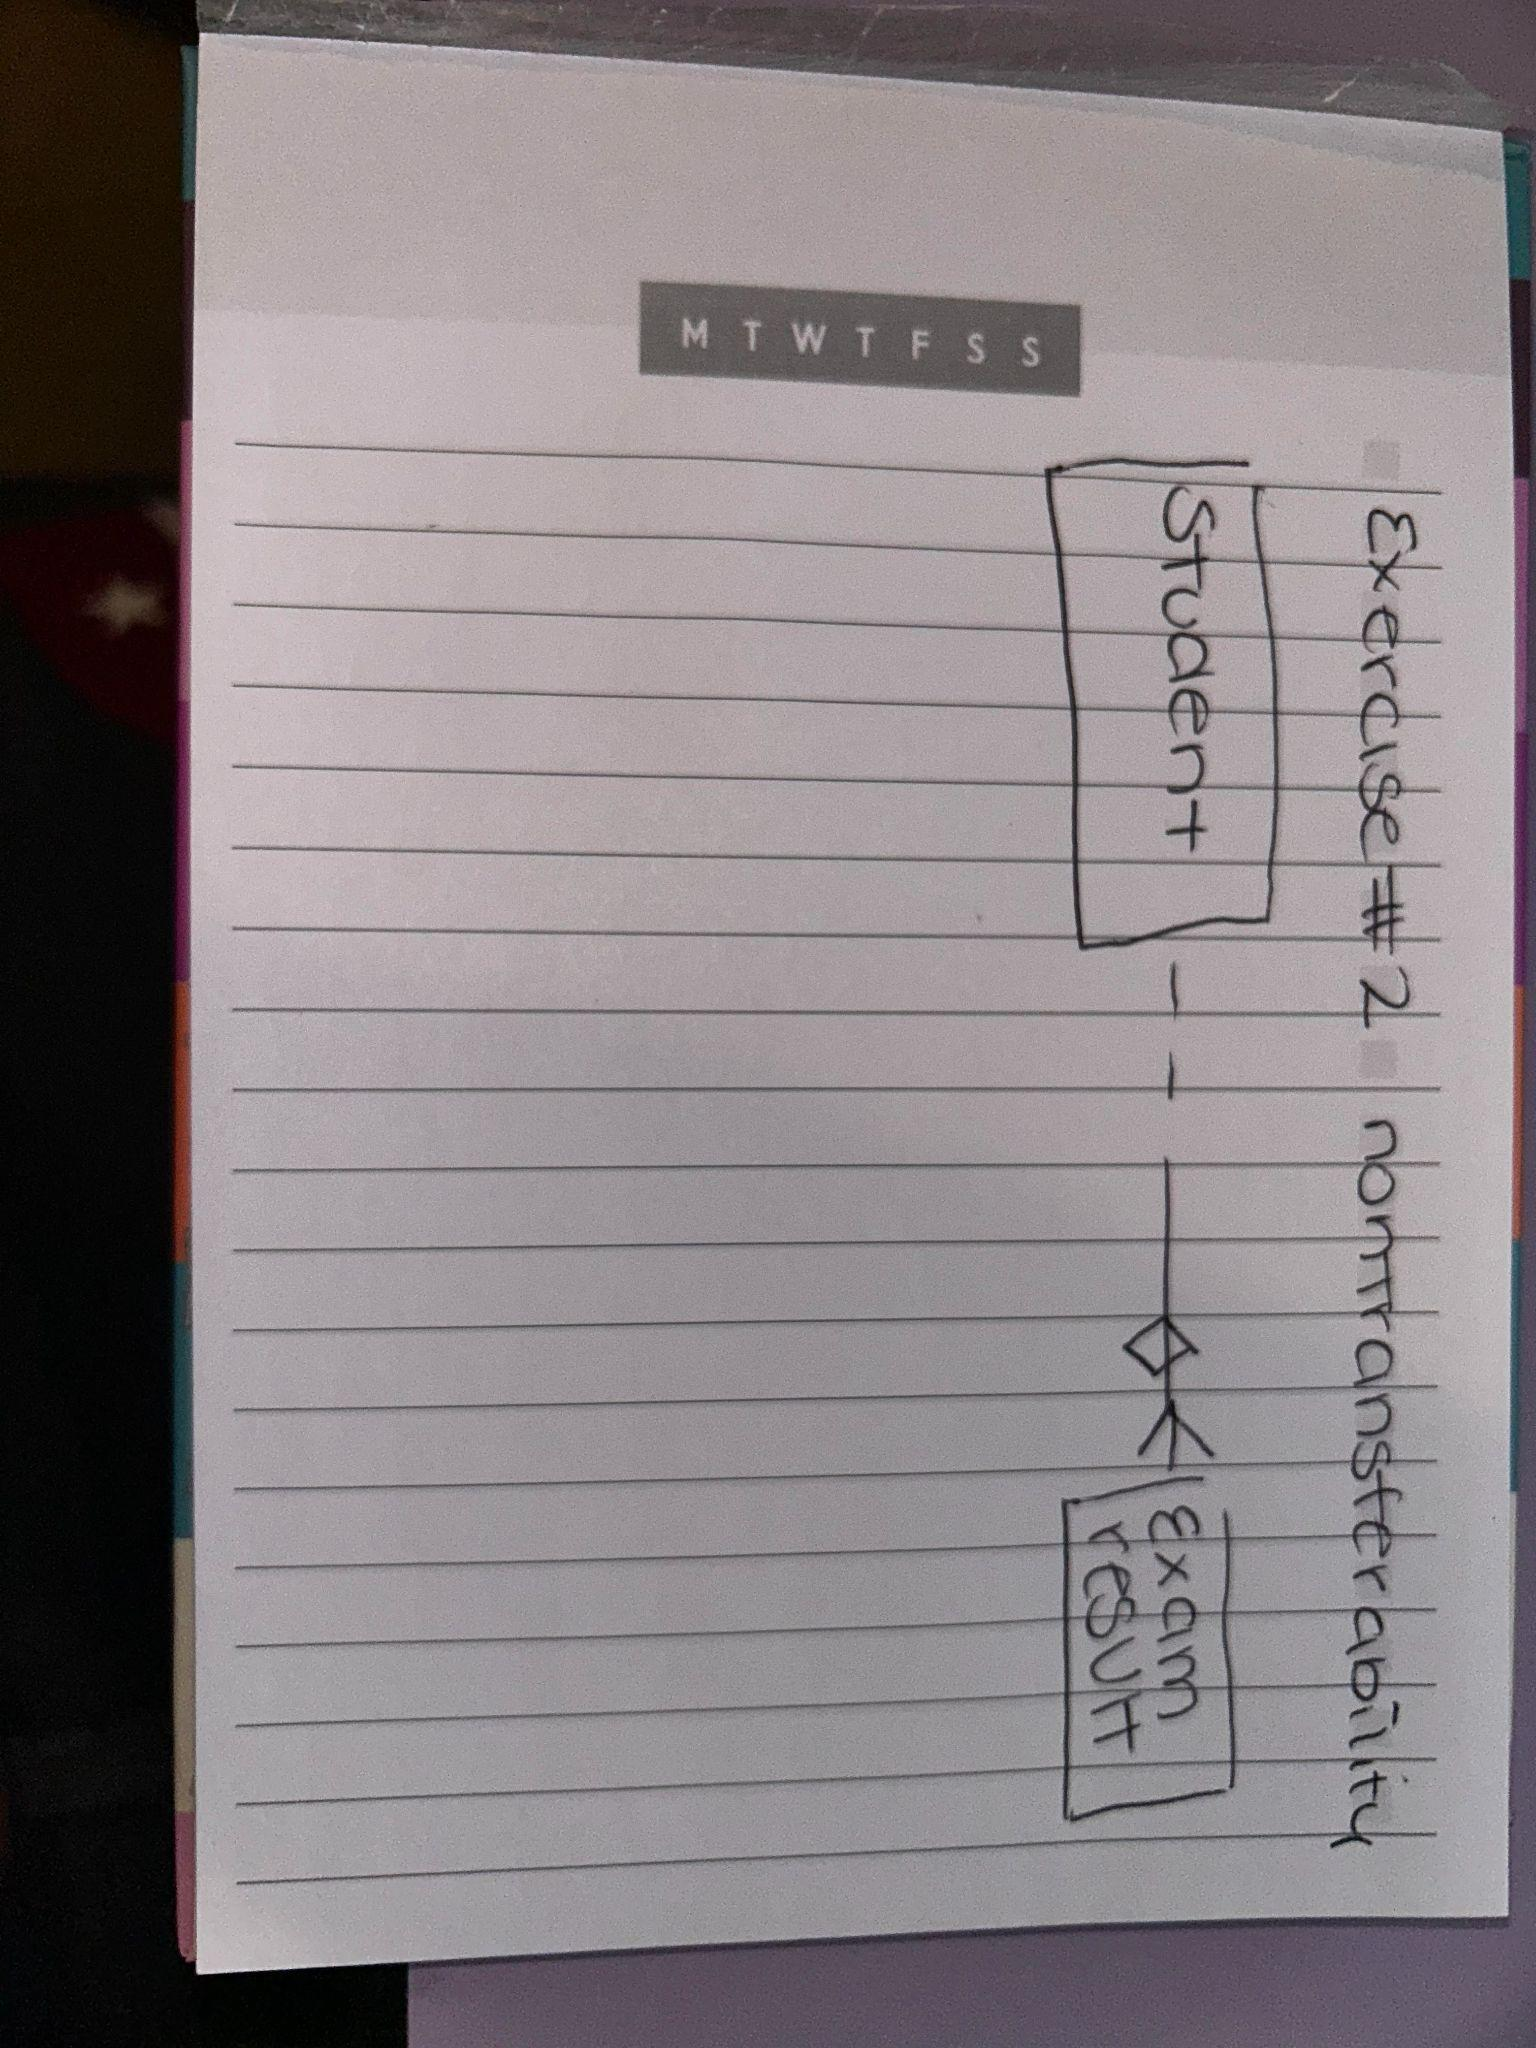 M T W T F S S
Exercise #2 nontransferability
Student
Exam
result